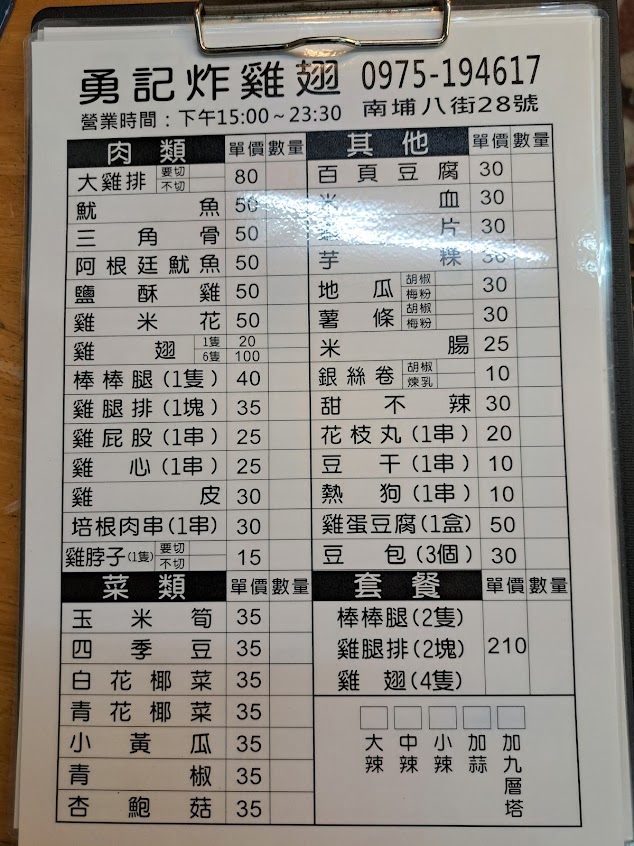 勇記炸雞翅 0975-194617
營業時間：下午15:00～23:30 南埔八街28號
肉類 單價 數量
大雞排 要切 不切 80
魷魚 50
三角骨 50
阿根廷魷魚 50
鹽酥雞 50
雞米花 50
雞翅 1隻 20
6隻 100
棒棒腿(1隻) 40
雞腿排(1塊) 35
雞屁股(1串) 25
雞心(1串) 25
雞皮 30
培根肉串(1串) 30
雞脖子(1隻) 要切 不切 15
菜類 單價 數量
玉米筍 35
四季豆 35
白花椰菜 35
青花椰菜 35
小黃瓜 35
青椒 35
杏鮑菇 35
其他 單價 數量
百頁豆腐 30
米血 30
片 30
芋粿 30
地瓜 胡椒 梅粉 30
薯條 胡椒 梅粉 30
米腸 25
銀絲卷 胡椒 煉乳 10
甜不辣 30
花枝丸(1串) 20
豆干(1串) 10
熱狗(1串) 10
雞蛋豆腐(1盒) 50
豆包(3個) 30
套餐 單價 數量
棒棒腿(2隻)
雞腿排(2塊) 210
雞翅(4隻)
大辣 中辣 小辣 加蒜 加九層塔